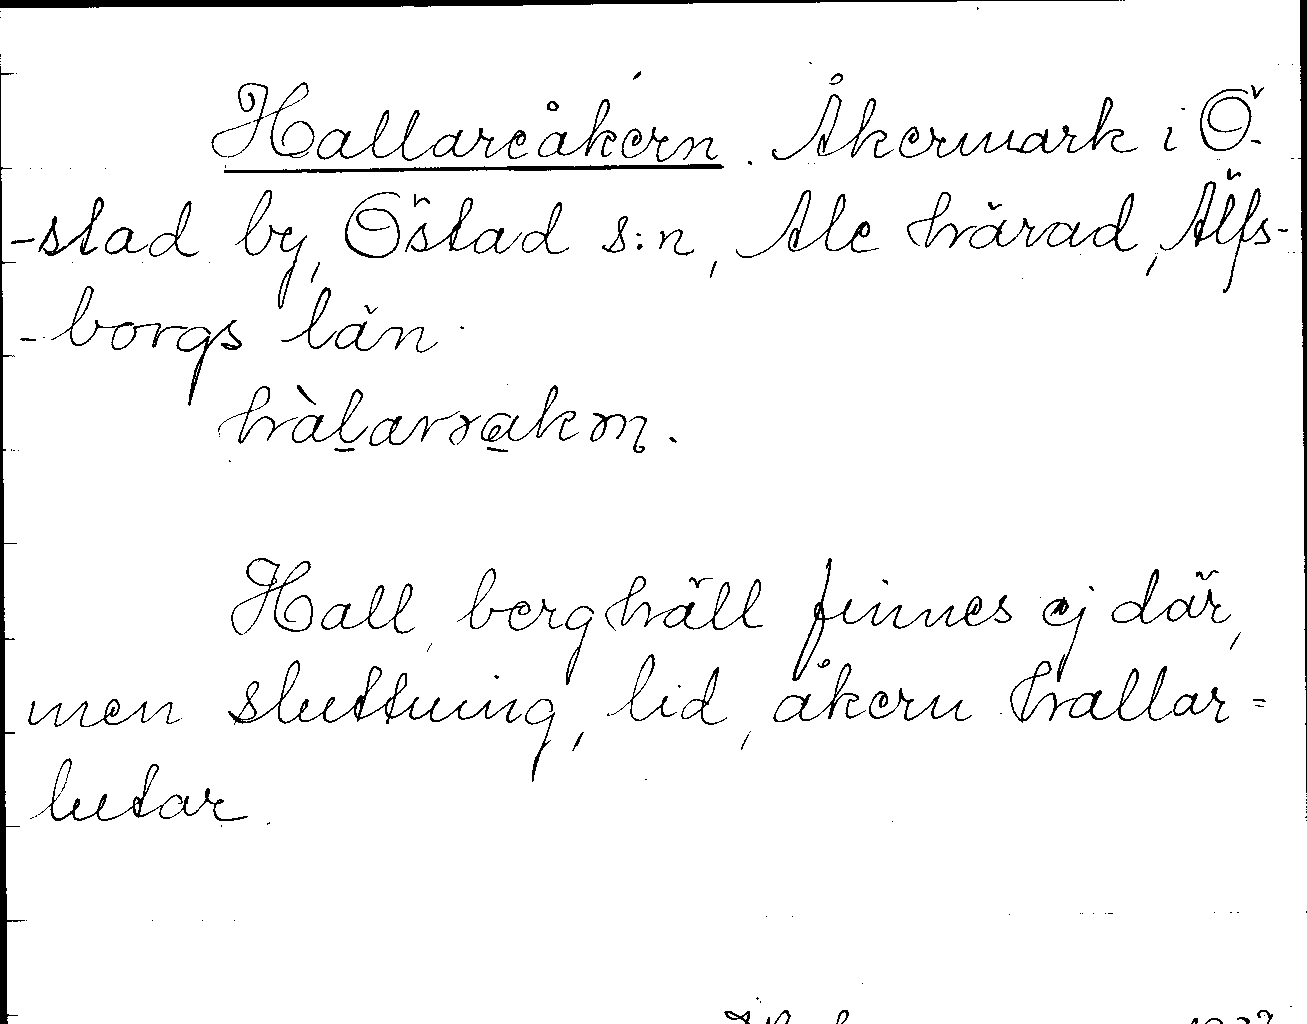 Hallareåkern. Åkermark i Ö-
-stad by, Östad s:n, Ale härad, Älfs-
-borgs län.
hàlarrakm.
Hall, berghäll finnes ej där,
men sluttning, lid, åkern hallar=
lutar.